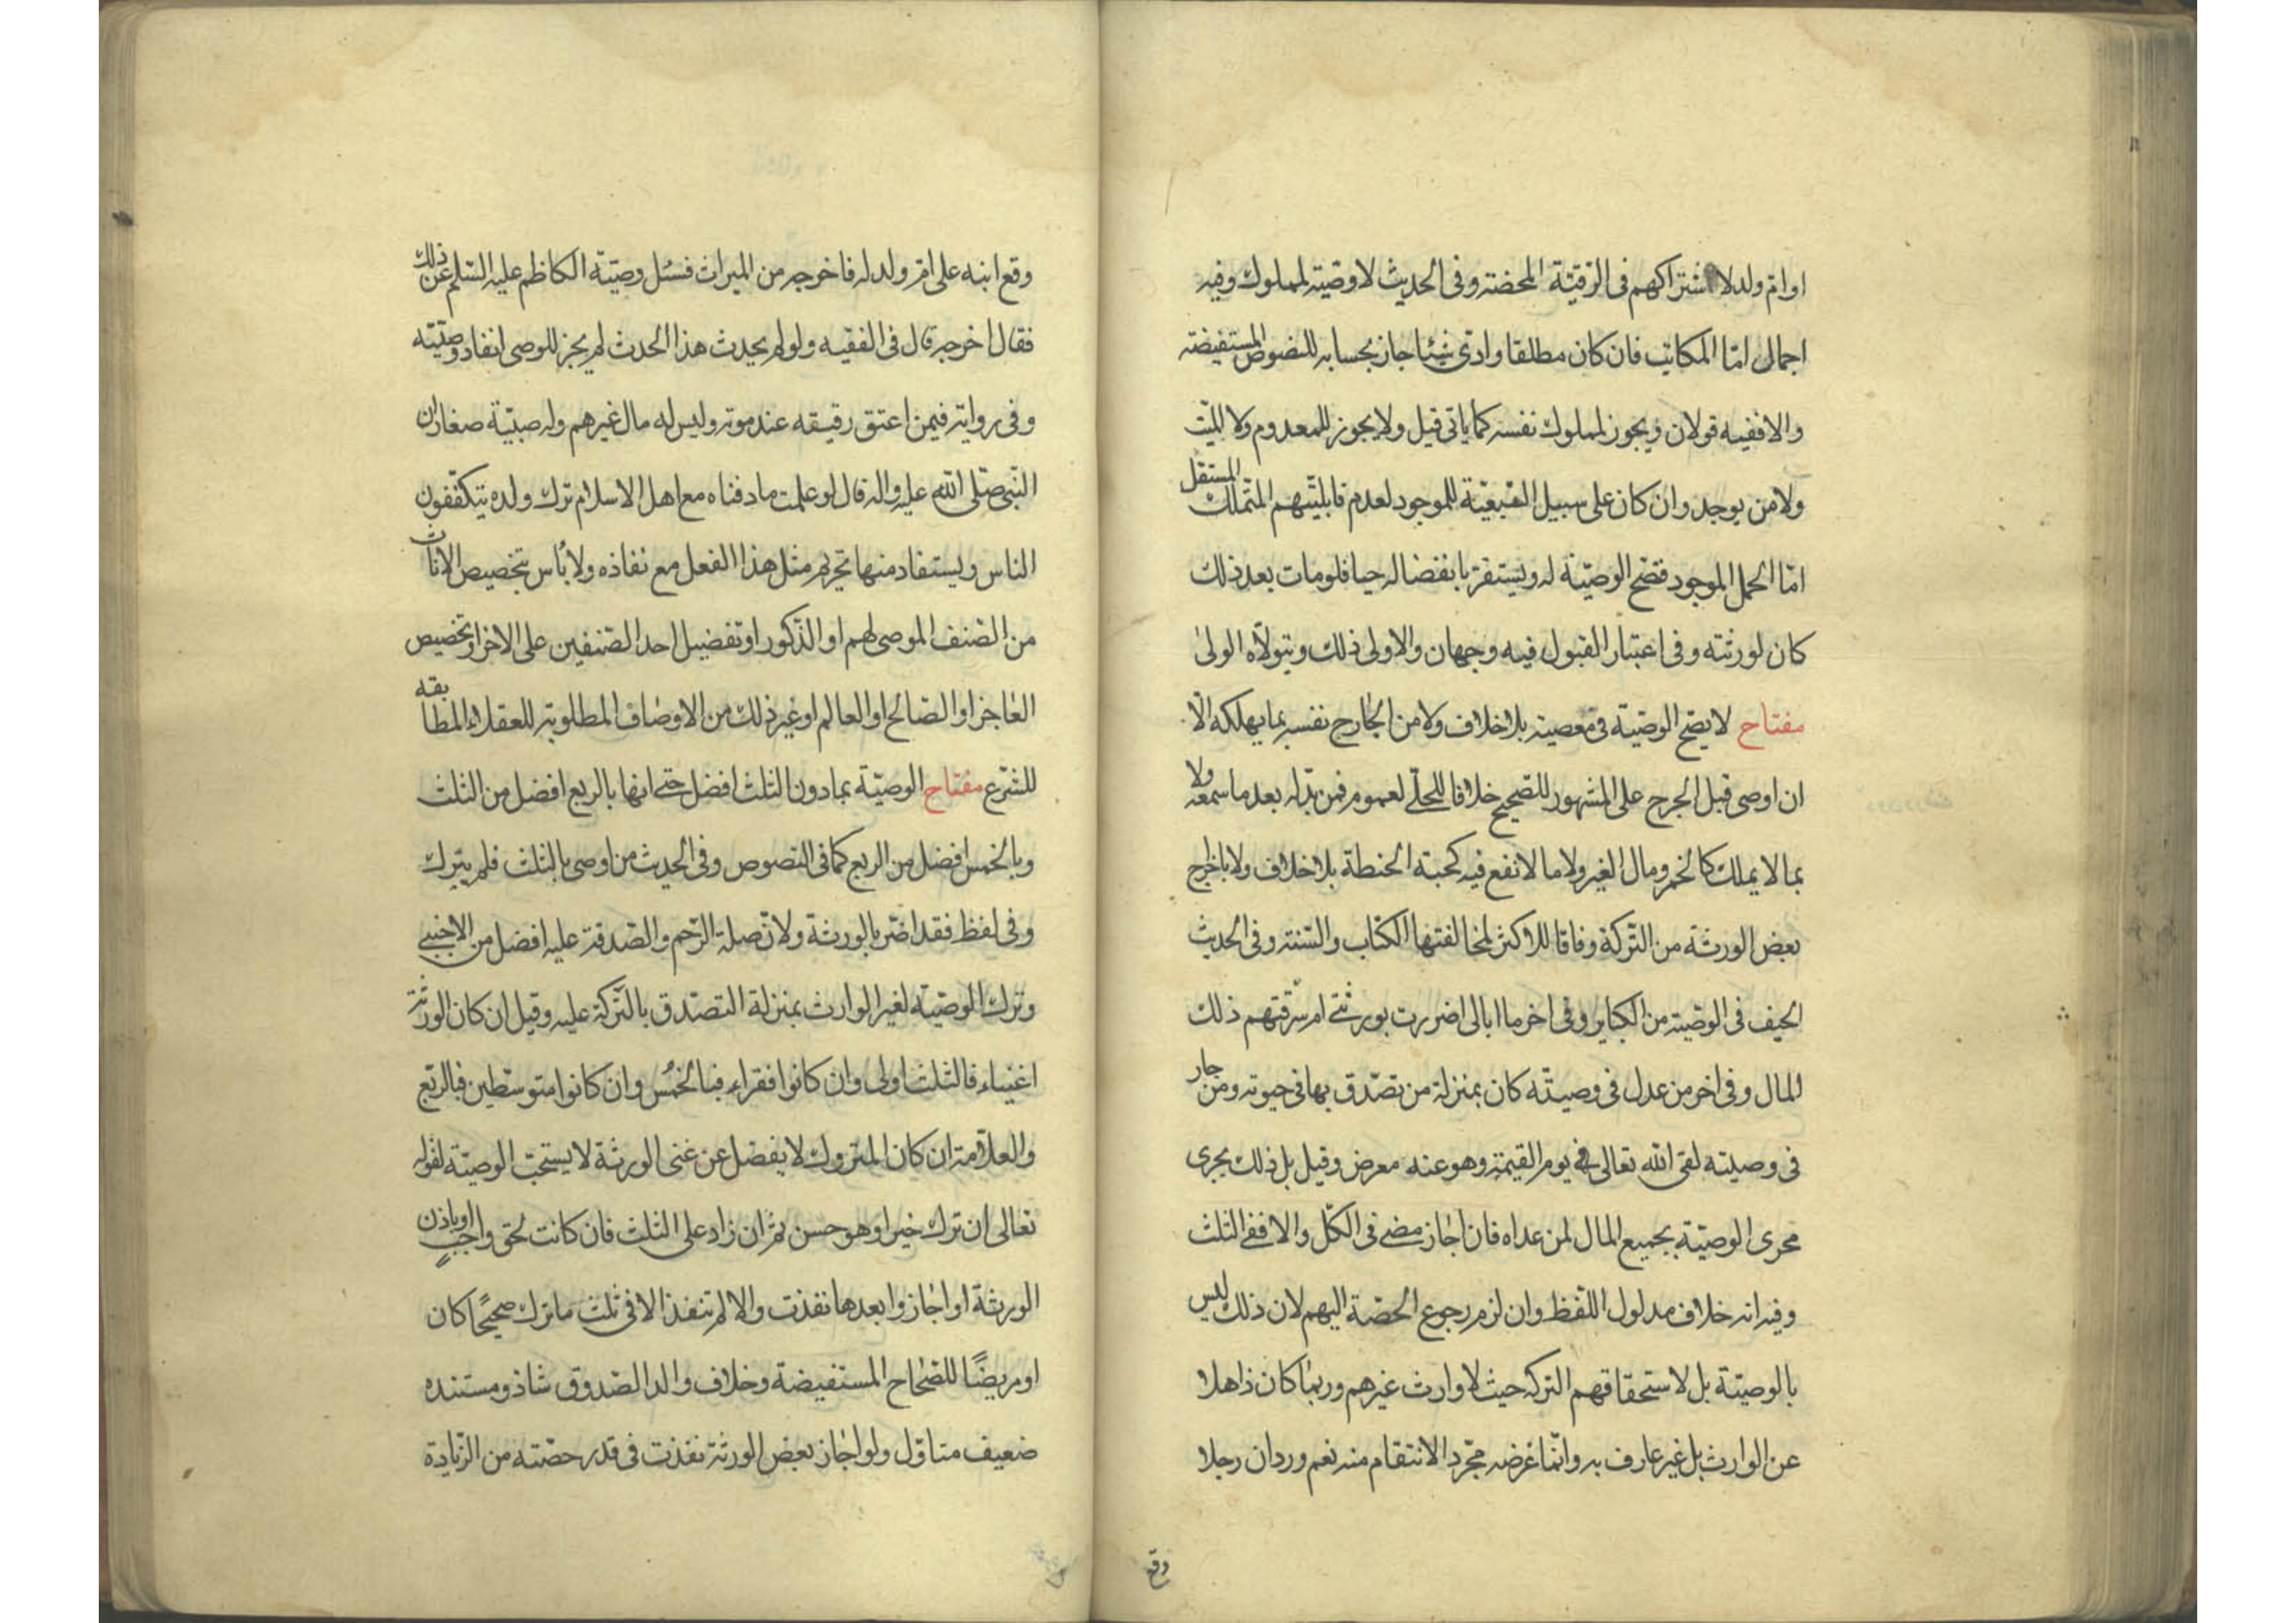 او ام ولد لاشتراكهم فى الرقيّة المحضة وفى الحديث لا وصّية لمملوك وفيه
اجمال امّا المكاتب فان كان مطلقا وادى شيئا جاز بحسابه للنصوص المستفيضة
والا ففيه قولان ويجوز لمملوك نفسه كما ياتى قيل ولا يجوز للمعدوم ولا الميّت
ولا من يوجد وان كان على سبيل التبعيّة للموجود لعدم قابليّتهم المتملك المستقل
امّا الحمل الموجود فتصح الوصيّة له ويستقر بانفضاله حيا فلو مات بعد ذلك
كان لورثته وفى اعتبار القبول فيه وجهان والاولى ذلك ويتولّاه الولى
مفتاح لا يصح الوصيّة فى معصية بلا خلاف ولا من الجارح نفسه بما يهلكه الّا
ان اوصى قبل الجرح على المشهور للصّحيح خلافا للحلّى لعموم فمن بدّله بعد ما سمعه ولا
بما لا يملك كالخمر ومال الغير ولا ما لا نفع فيه كحبة الحنطة بلا خلاف ولا باخراج
بعض الورثة من التّركة وفاقا للاكثر لمخالفتها الكتاب والسّنة وفى الحديث
الحيف فى الوصّية من الكباير وفى اخر ما ابالى اضررت بورثتى ام سرّقتهم ذلك
المال وفى اخر من عدل فى وصيتّه كان بمنزلة من تصّدق بها فى حيوته ومن جار
فى وصيته لقى الله تعالى فى يوم القيمة وهو عنه معرض وقيل بل ذلك يجرى
مجرى الوصيّة بجميع المال لمن عداه فان اجاز مضى فى الكلّ والا ففى الثلث
وفيه انه خلاف مدلول اللّفظ وان لزم رجوع الحصّة اليهم لان ذلك ليس
بالوصيّة بل لاستحقاقهم التركة حيث لا وارث غيرهم وربما كان ذاهلا
عن الوارث بل غير عارف به وانّما غرضه مجّرد الانتقام منه نعم ورد ان رجلا
وقع
وقع ابنه على ام ولد له فاخرجه من الميراث فسئل وصيّه الكاظم عليه السّلم عن ذلك
فقال اخرجه قال فى الفقيه ولو لم يحدث هذا الحدث لم يجز للوصى انفاذ وصّيته
وفى رواية فيمن اعتق رقيقه عند موته وليس له مال غيرهم وله صبيّة صغار ان
النّبى صّلى الله عليه واله قال لو علمت ما دفناه مع اهل الاسلام ترك ولده يتكفّفون
الناس ويستفاد منها تحريم مثل هذا الفعل مع نفاذه ولا باس بتخصيص الاناث
من الصّنف الموصى لهم او الذّكور او تفضيل احد الصّنفين على الاخر او تخصيص
العاجز او الصّالح او العالم او غير ذلك من الاوصاف المطلوبة للعقلاء المطابقه
للشّرع مفتاح الوصيّة بما دون الثلث افضل حتى انها بالربع افضل من الثلث
وبالخمس افضل من الربع كما فى النصوص وفى الحديث من اوصى بالثلث فلم يترك
وفى لفظ فقد اضّر بالورثة ولانّ صلة الرّحم والصّدقة عليه افضل من الاجنبى
وترك الوصيّة لغير الوارث بمنزلة التصدّق بالتّركة عليه وقيل ان كان الورثة
اغنياء فالثلث اولى وان كانوا فقراء فبالخمس وان كانوا متوسّطين فبالرّبع
والعلاّمة ان كان المتروك لا يفضل عن غنى الورثة لا يستحبّ الوصيّة لقوله
تعالى ان ترك خيرا وهو حسن ثم ان زاد على الثلث فان كانت بحق واجب او باذن
الورثة او اجازوا بعدها نفذت والا لم تنفذ الا فى ثلث ما ترك صحيحًا كان
او مريضًا للصّحاح المستفيضة وخلاف والد الصّدوق شاذ ومستنده
ضعيف متاوّل ولو اجاز بعض الورثة نفذت فى قدر حصّته من الزّيادة